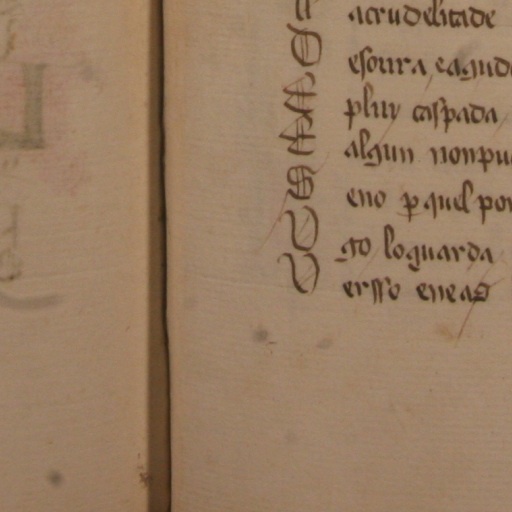 acrudelitade
esoura eagud
pluy caspada
algun nonpu
eno p quel por
go loguarda
ersso eneas